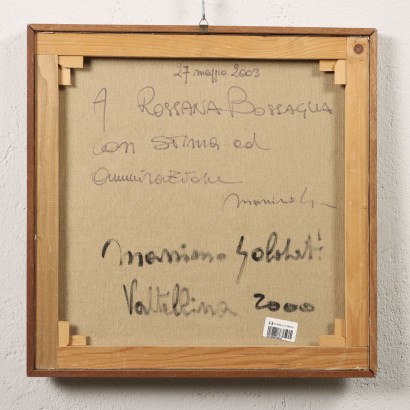 27 maggio 2003
A ROSSANA BOSSAGLIA
con stima ed
ammirazione
Massimo
Valtellina 2000